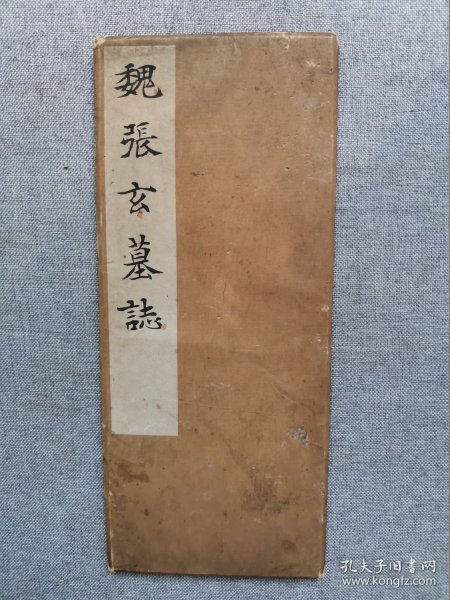 魏張玄墓誌
孔夫子旧书网
www.kongfz.com